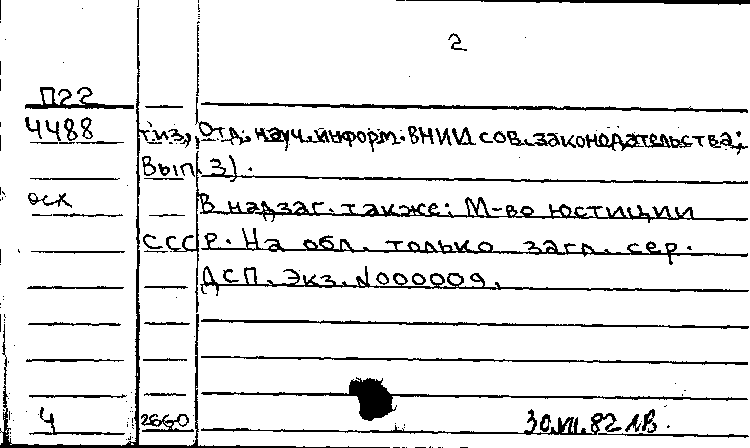 2
П22
4488 тиз, Отд. науч. информ. ВНИИ сов. законодательства;
Вып. 3).
осх В надзаг. также: М-во юстиции
СССР. На обл. только загл. сер.
ДСП. Экз. N000009.
4 2660 30.VII.82 Л.В.